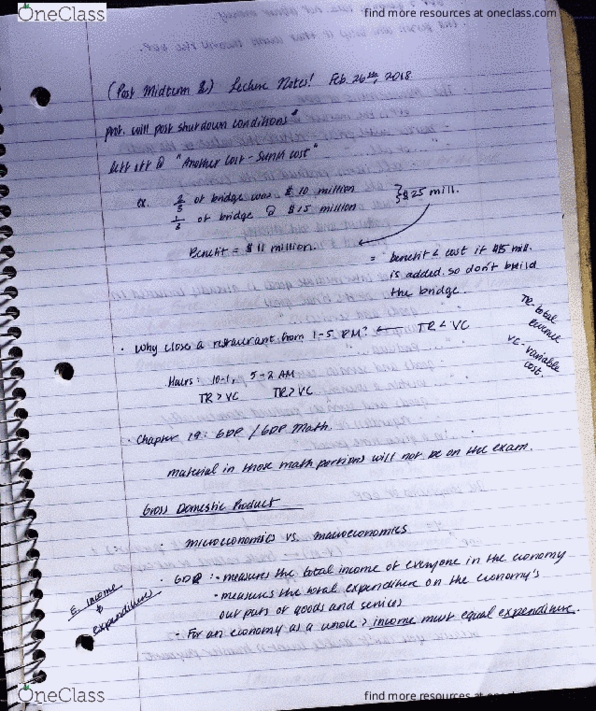 OneClass
find more resources at oneclass.com
(Post Midterm 2) Lecture Notes! Feb. 26th, 2018
prof. will post shutdown conditions
left off @ "Another cost - Sunk cost"
ex. 2/3 of bridge was $10 million } $25 mill.
1/3 of bridge @ $15 million
Benefit = $11 million.
= benefit < cost if $15 mill.
is added. so don't build
the bridge.
TR-total
revenue
VC-variable
cost.
· Why close a restaurant from 1-5 PM? ← TR < VC
Hours: 10-1, 5-2 AM
TR > VC TR > VC
· Chapter 19: GDP / GDP Math.
material in those math portions will not be on the exam.
Gross Domestic Product
· microeconomics vs. macroeconomics
· GDP: · measures the total income of everyone in the economy
· measures the total expenditure on the economy's
output of goods and services
· For an economy as a whole > income must equal expenditure.
income
expenditures
OneClass
find more resources at oneclass.com